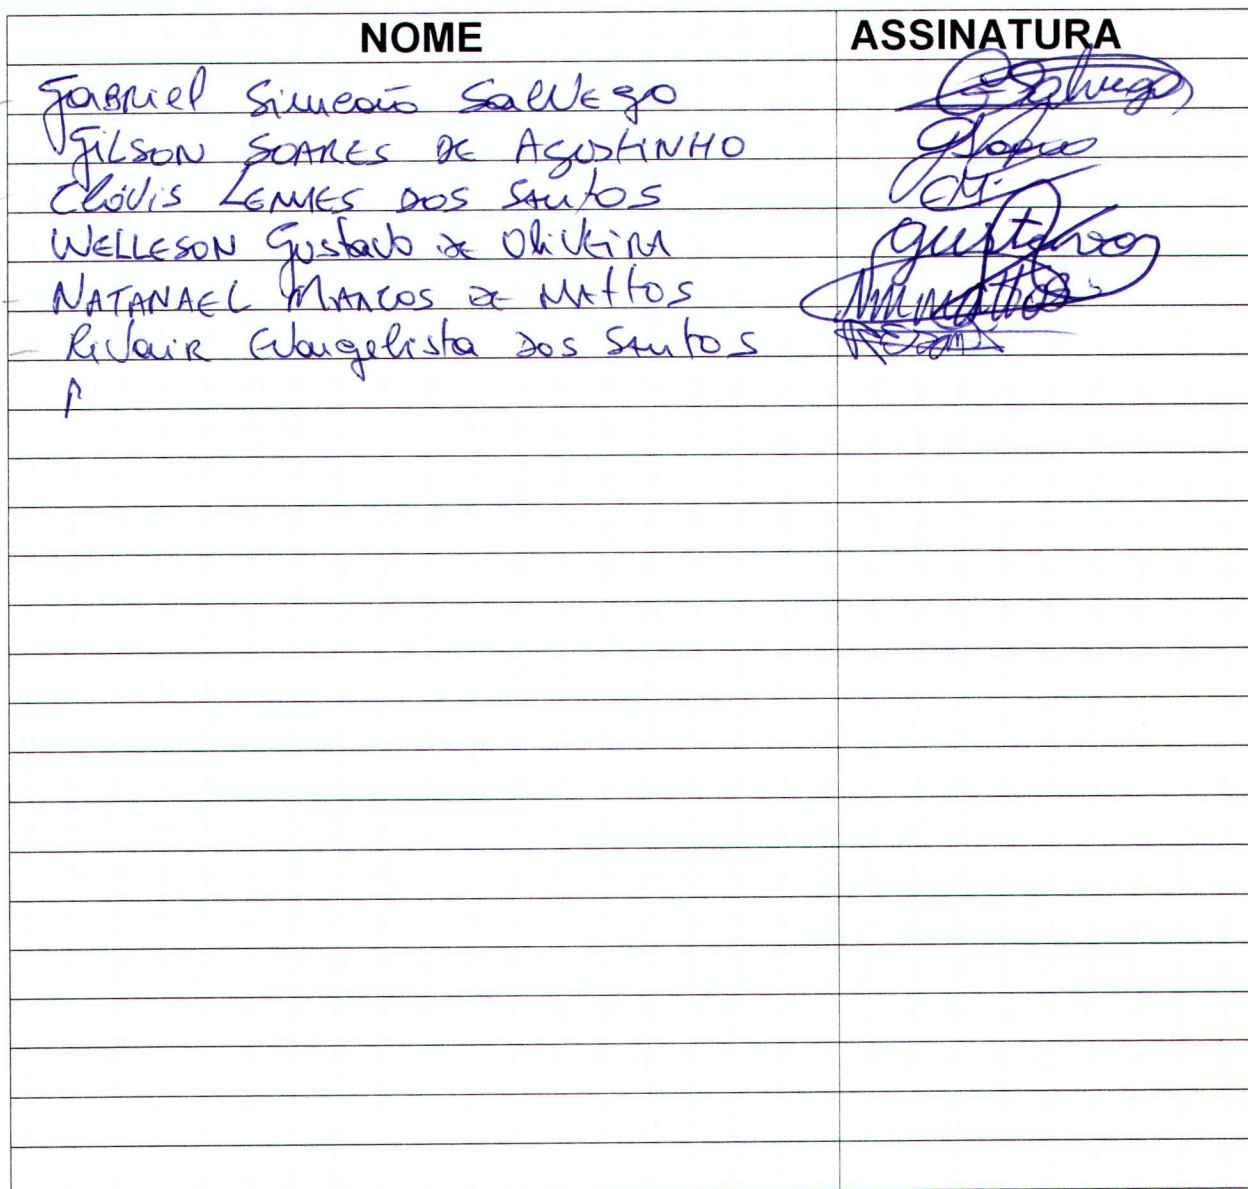 NOME ASSINATURA
Gabriel Simeão Salvego
Gilson Soares de Agostinho
Clóvis Lemes dos Santos
Welleson Gustavo de Oliveira Gustavo
Natanael Marcos de Mattos Nmmattos
Rivair Evangelista dos Santos